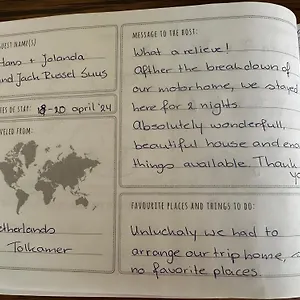 GUEST NAME(S)
Hans + Jolanda
and Jack Russel Guus
ES OF STAY: 18-20 april '24
VELED FROM:
etherlands
Tolkamer
MESSAGE TO THE HOST:
What a relieve!
Afther the breakdown of
our motorhome, we stayed
here for 2 nights.
Absolutely wonderfull,
beautiful house and eno
things available. Thank
y
FAVOURITE PLACES AND THINGS TO DO:
Unlucholy we had to
arrange our trip home,
no favorite places.